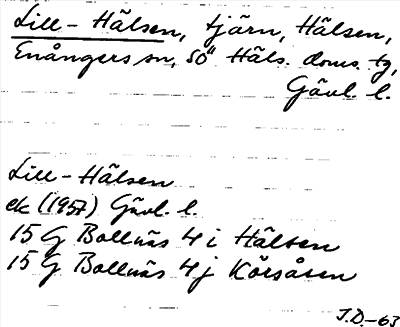 Lill-Hälsen, tjärn, Hälsen,
Enångers sn, Sö Häls. doms. tg,
Gävl. l.
Lill-Hälsen
ek (1957) Gävl. l.
15 G Bollnäs 4 i Hälsen
15 G Bollnäs 4 j Körsåsen
J.D.-63